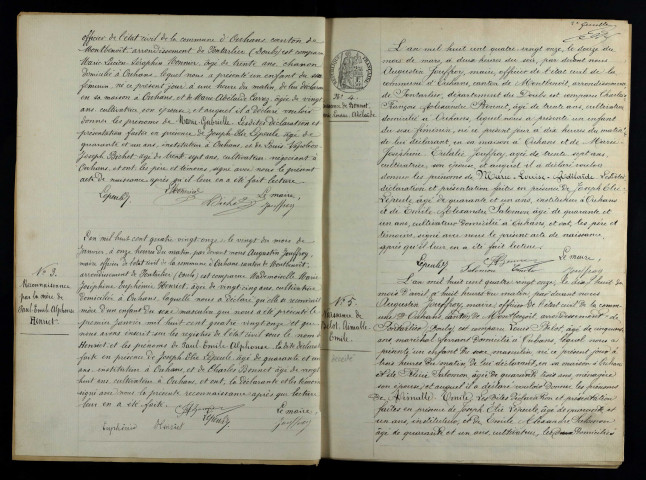 officier de l'état civil de la commune d'Orchans canton de
Montbenoit arrondissement de Pontarlier (Doubs) est comparu
Marie Lucien Séraphin Bonnet, âgé de trente ans,
domicilié à Orchans, lequel nous a présenté un enfant du sexe
féminin, né ce présent jour à du matin, de lui déclarant
en sa maison à Orchans, et de Marie Adélaïde âgée de vingt
ans, cultivatrice son épouse, et auquel il a déclaré vouloir
donner les prénoms de Marie Gabrielle. Lesdites déclaration et
présentation faites en présence de Joseph Elie Lepeule, âgé de
quarante et un ans, instituteur à Orchans, et de Louis
Joseph Bichet âgé de trente sept ans, cultivateur négociant à
Orchans, et ont, les père et témoins, signé avec nous le présent
acte de naissance après qu'il leur en a été fait lecture
Lepeule Bonnet Bichet Le maire,
Jouffroy
N° 3.
Reconnaissance
par la mère de
Paul Emile Alphonse
Henriet
L'an mil huit cent quatre vingt onze le vingt du mois de
Janvier, à onze heures du matin par devant nous Augustin Jouffroy,
maire officier de l'état civil de la commune d'Orchans canton de Montbenoit,
arrondissement de Pontarlier (Doubs) est comparue Mademoiselle Marie
Joséphine Euphémie Henriet, âgée de vingt cinq ans, cultivatrice
domiciliée à Orchans, laquelle nous a déclaré qu'elle se reconnaît
mère d'un enfant du sexe masculin qui nous a été présenté le
premier Janvier mil huit cent quatre vingt onze et que
nous avons inscrit sur les registres de l'état civil sous le nom d'
Henriet et les prénoms de Paul Emile Alphonse. La dite déclaration
faite en présence de Joseph Elie Lepeule, âgé de quarante et un
ans, instituteur à Orchans, et de Charles Bonnet âgé de vingt
huit ans cultivateur à Orchans, et ont, la Déclarante et les témoins
signé avec nous la présente reconnaissance après que lecture
leur en a été faite.
Lepeule Le maire,
Euphémie Henriet Jouffroy
2e feuille
N° 4.
Naissance de Bonnet,
Marie Louise Adélaïde
L'an mil huit cent quatre-vingt onze, le seize du
mois de mars, à deux heures du soir, par devant nous
Augustin Jouffroy, maire, officier de l'état civil de la
commune d'Orchans, canton de Montbenoit, arrondissement
de Pontarlier, département du Doubs est comparu Charles
François Alexandre Bonnet, âgé de trente ans, cultivateur
domicilié à Orchans, lequel nous a présenté un enfant
du sexe féminin, né ce présent jour à dix heures du matin,
de lui déclarant, en sa maison à Orchans et de Marie
Joséphine Jouffroy, âgée de trente sept ans,
cultivatrice, son épouse, et auquel il a déclaré vouloir
donner les prénoms de Marie-Louise-Adélaïde. Lesdites
déclaration et présentation faites en présence de Joseph Elie
Lepeule âgé de quarante et un ans, instituteur à Orchans
et de Emile Alexandre Salomon âgé de quarante et
un ans, cultivateur domicilié à Orchans, et ont, les père et
témoins, signé avec nous le présent acte de naissance
après qu'il leur en a été fait lecture.
Lepeule Bonnet Le maire,
Salomon Emile Jouffroy
N° 5.
Naissance de
Armelle
Emile
L'an mil huit cent quatre vingt onze, le dix huit du
mois d'avril à huit heures du matin, par devant nous
Augustin Jouffroy, maire, officier de l'état civil de la com-
mune d'Orchans, canton de Montbenoit arrondissement de
Pontarlier, Doubs, est comparu Louis âgé de cinquante
ans, maréchal ferrant domicilié à Orchans, lequel nous a
présenté un enfant du sexe masculin, né ce présent jour à
trois heures du matin de lui déclarant, en sa maison à Orchans
et de Salomon, âgée de quarante trois ans, ménagère
son épouse, et auquel il a déclaré vouloir donner les prénoms
de Emile. Les dites déclaration et présentation
faites en présence de Joseph Elie Lepeule, âgé de quarante et
un ans, instituteur, et de Emile Alexandre Salomon
âgé de quarante et un ans, cultivateur, les deux domiciliés